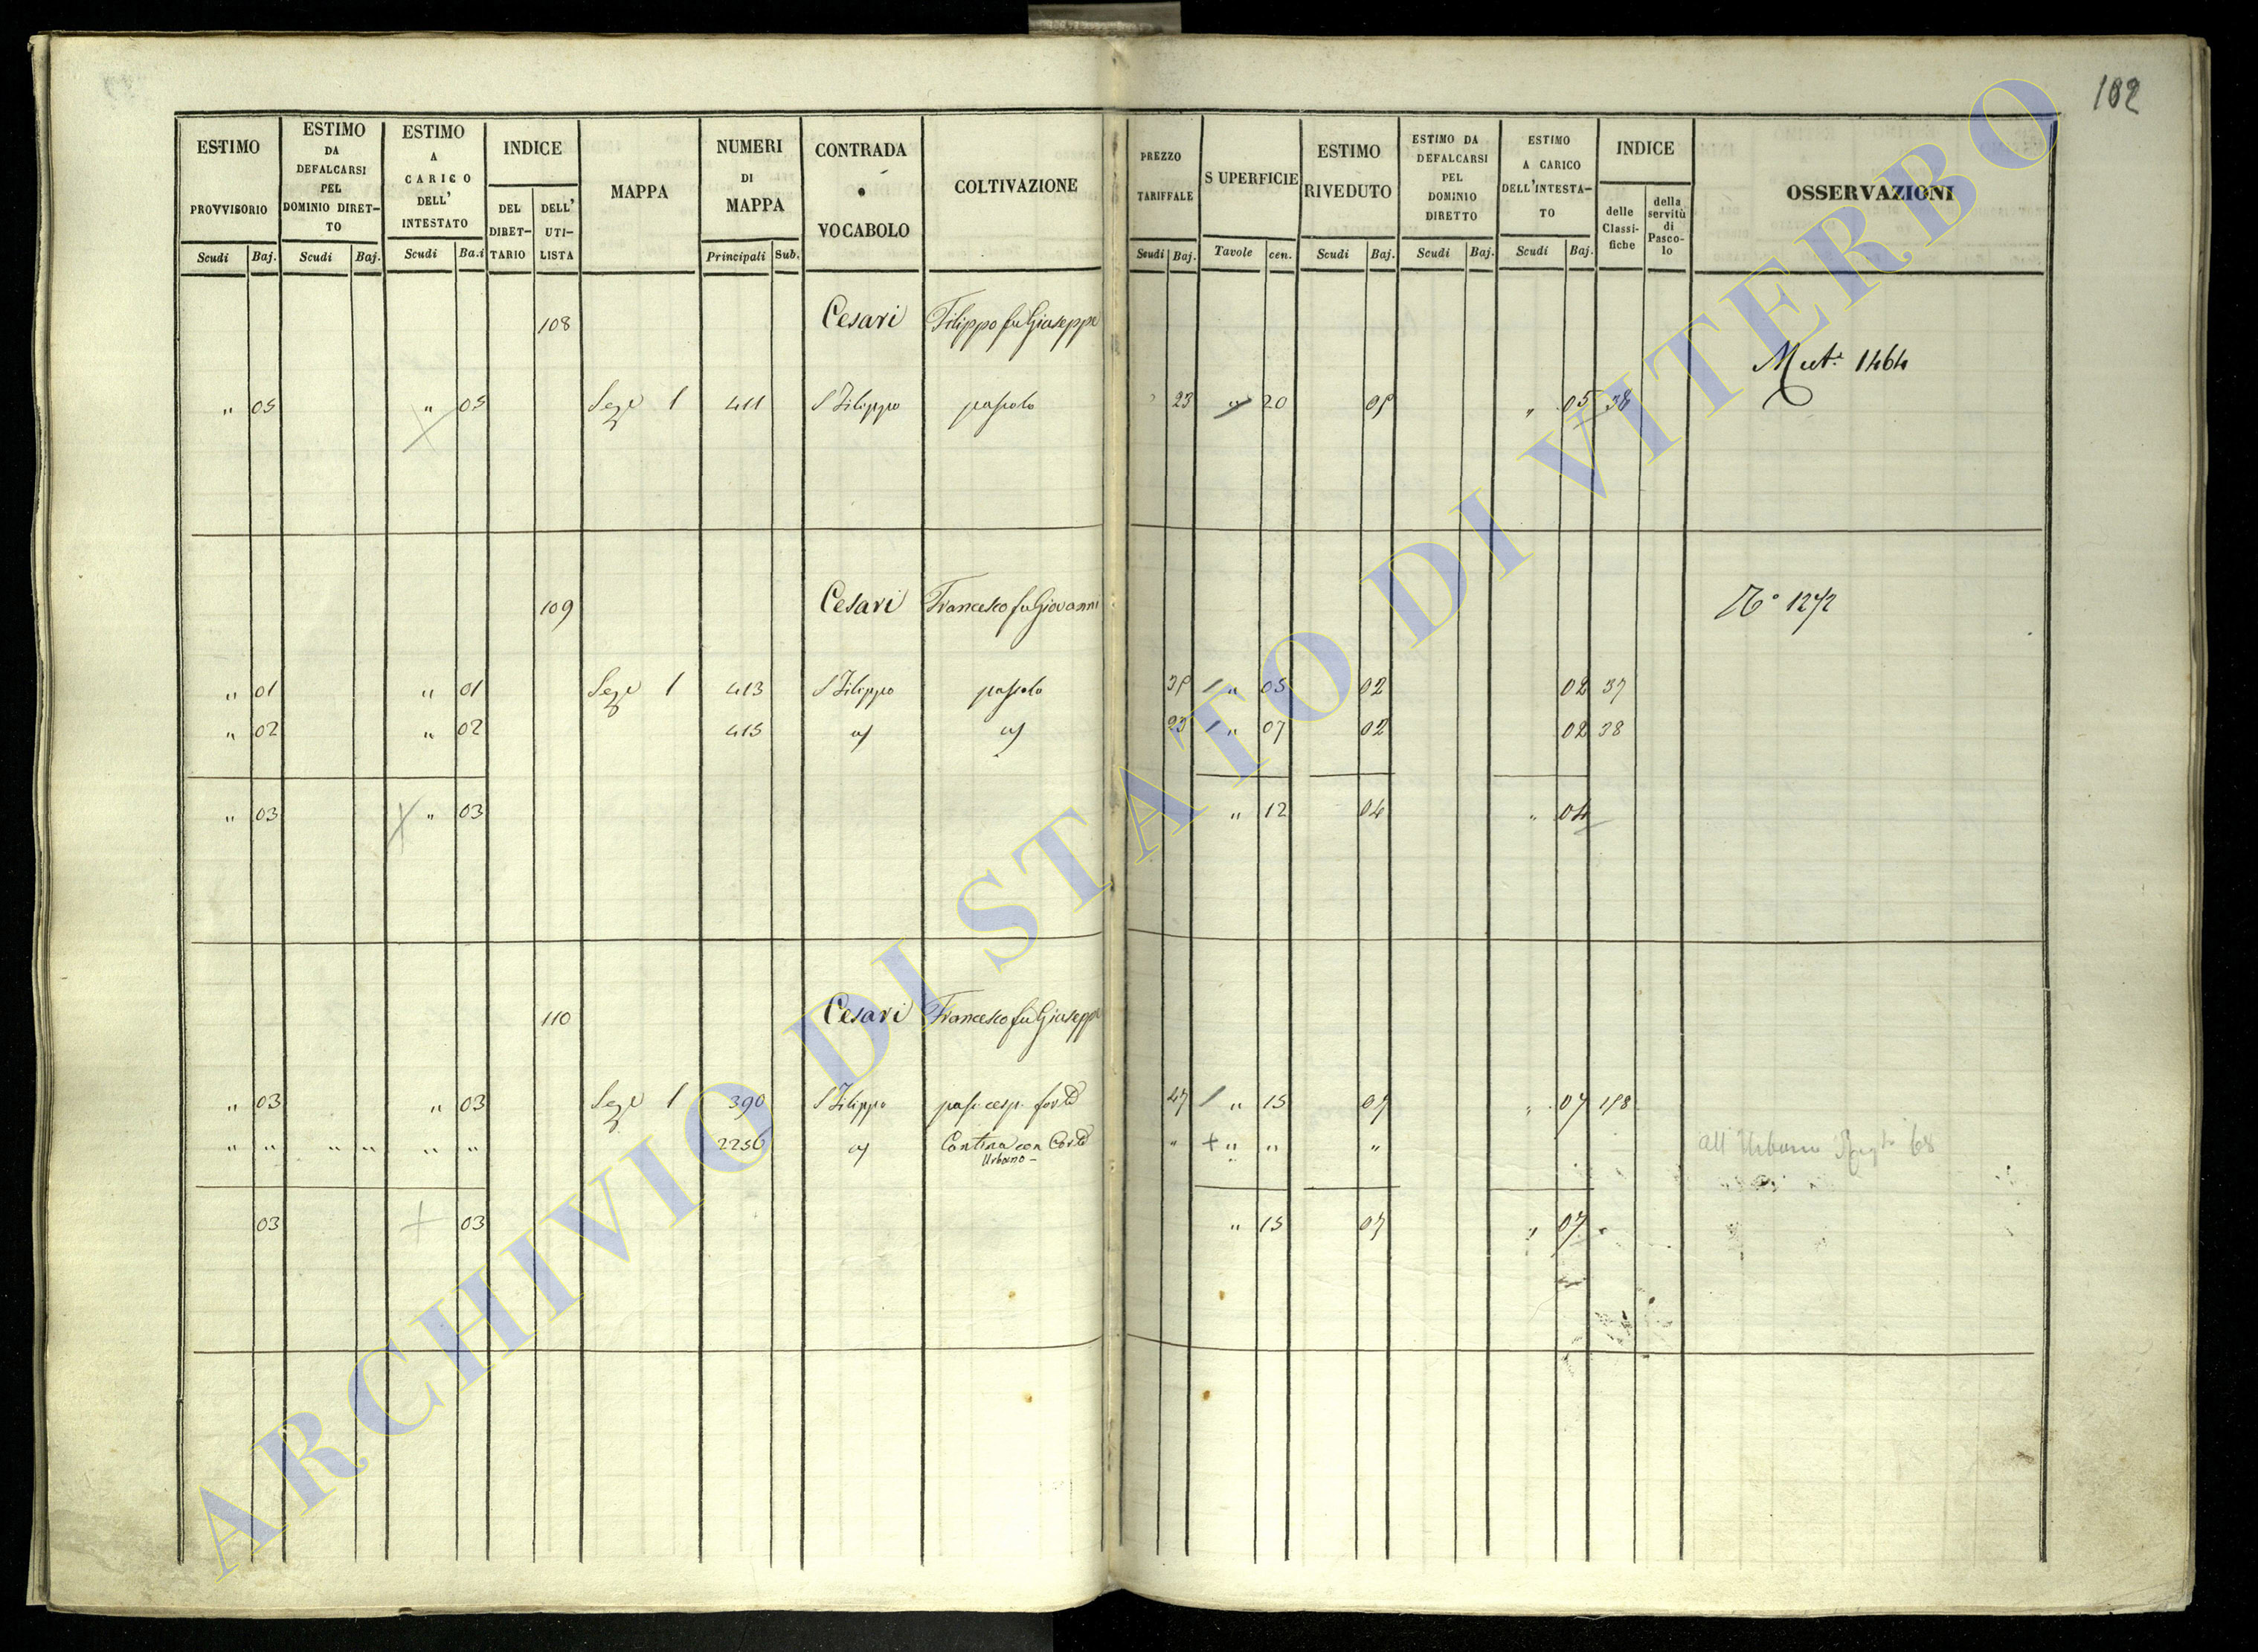 102
ESTIMO PROVVISORIO Scudi Baj.
ESTIMO DA DEFALCARSI PEL DOMINIO DIRETTO Scudi Baj.
ESTIMO A CARICO DELL' INTESTATO Scudi Ba.i
INDICE DEL DIRETTARIO DELL' UTILISTA
MAPPA
NUMERI DI MAPPA Principali Sub.
CONTRADA o VOCABOLO
COLTIVAZIONE
PREZZO TARIFFALE Scudi Baj.
SUPERFICIE Tavole cen.
ESTIMO RIVEDUTO Scudi Baj.
ESTIMO DA DEFALCARSI PEL DOMINIO DIRETTO Scudi Baj.
ESTIMO A CARICO DELL'INTESTATO Scudi Baj.
INDICE delle Classifiche della servitù di Pascolo
OSSERVAZIONI
108 Cesari Filippo fu Giuseppe
Mut.e 1464
" 05 " 05 Seze 1 411 S Filippo pascolo 23 " 20 05 " 05 38
109 Cesari Francesco fu Giovanni N° 1272
" 01 " 01 Seze 1 413 S Filippo pascolo 35 " 05 02 02 37
" 02 " 02 415 23 " 07 02 02 38
" 03 " 03 " 12 04 " 04
110 Cesari Francesco fu Giuseppe
" 03 " 03 Seze 1 390 S Filippo pas. cesp. forte 47 " 15 07 " 07 118
" " " " " " 2256 Cantina con Corte Urbano " + " " " all Urbano 68
03 03 " 15 07 " 07
ARCHIVIO DI STATO DI VITERBO